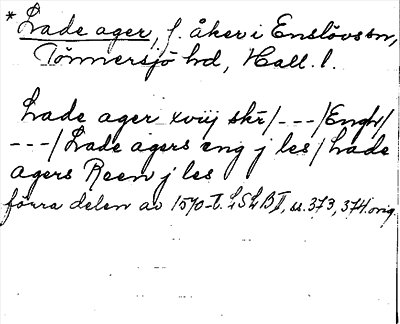 *Lade ager, f. åker i Enslövs sn,
Tönnersjö hd, Hall. l.
Lade ager xviij skr/---/Engh/
---/Lade agers eng j les/Lade
agers Reen j les
förra delen av 1570-t. LSLB II, s. 373, 374 orig.